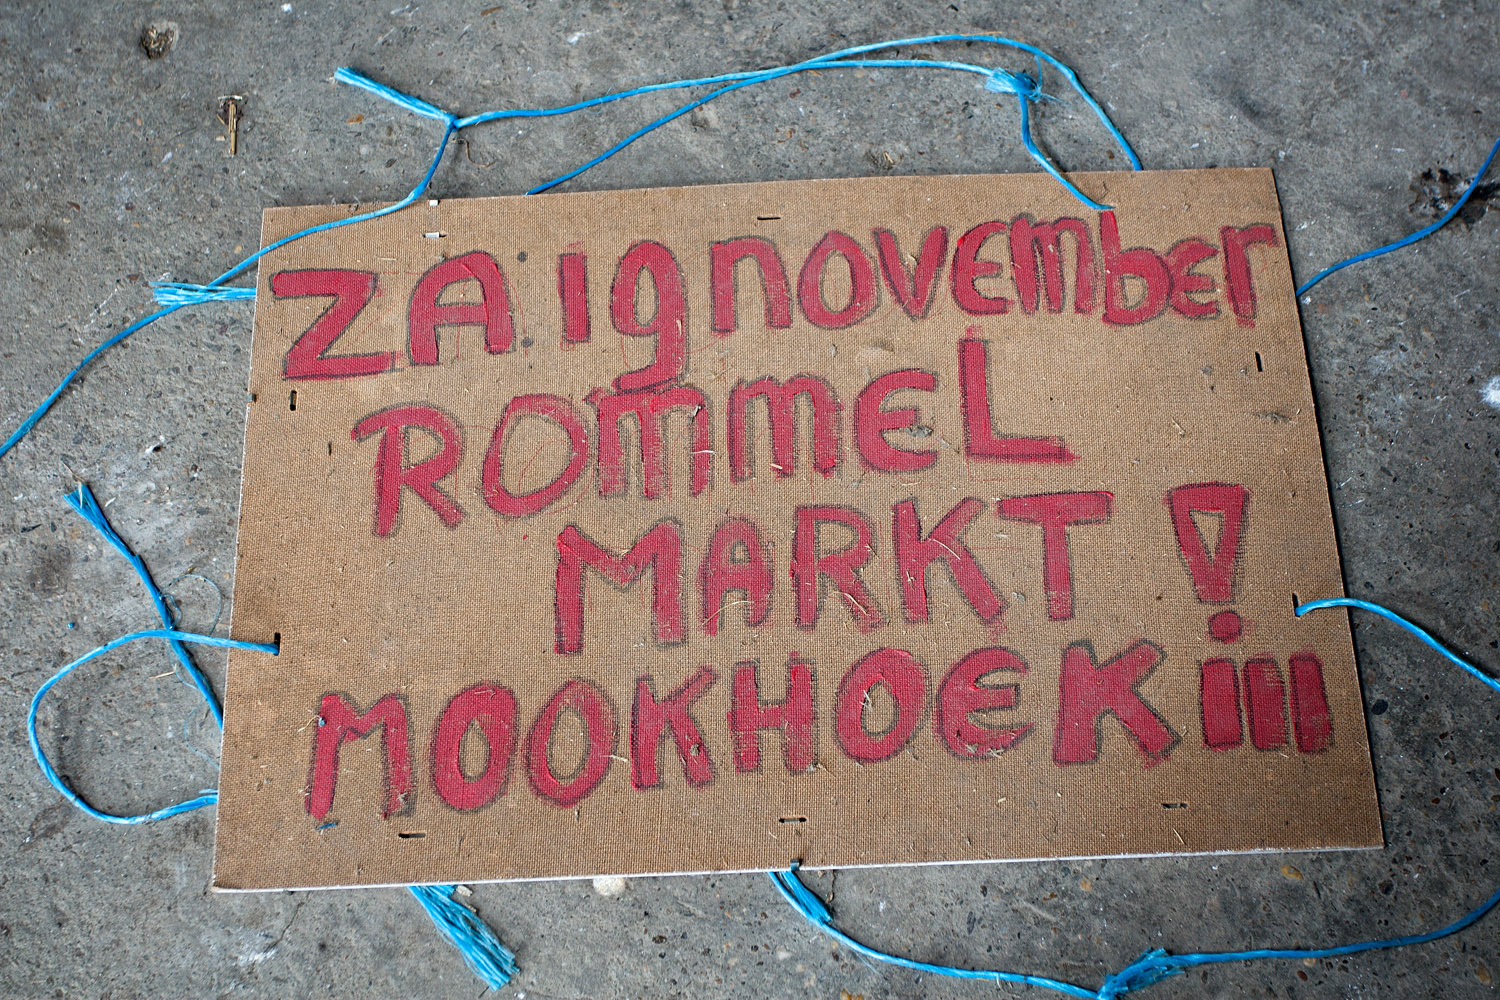 ZA 19 november
ROMMEL
MARKT!
MOOKHOEK 111